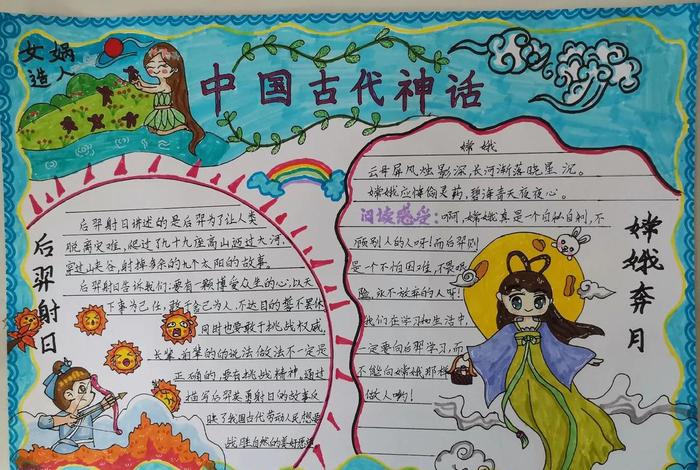 女娲
造人
中国古代神话
后羿射日
后羿射日讲述的是后羿为了让人类
脱离灾难,爬过了九十九座高山迈过大河,
穿过山峡谷,射掉多余的九个太阳的故事。
后羿射日告诉我们:要有一颗博爱众生的心,以天
下事为己任,敢于舍己为人,不达目的誓不罢休
同时也要敢于挑战权威,
长辈、前辈的的说法做法不一定是
正确的,要有挑战精神,通过
描写后羿英勇射日的故事反
映了我国古代劳动人民想要
战胜自然的美好愿望
嫦娥
云母屏风烛影深,长河渐落晓星沉。
嫦娥应悔偷灵药,碧海青天夜夜心。
阅读感受:啊,嫦娥真是一个自私自利,不
顾别人的人呀!而后羿则
是一个不怕困难,不畏艰
险,永不放弃的人呀!
我们在学习和生活中,
一定要向后羿学习,而
不能向嫦娥那样
做人哟!
嫦娥奔月